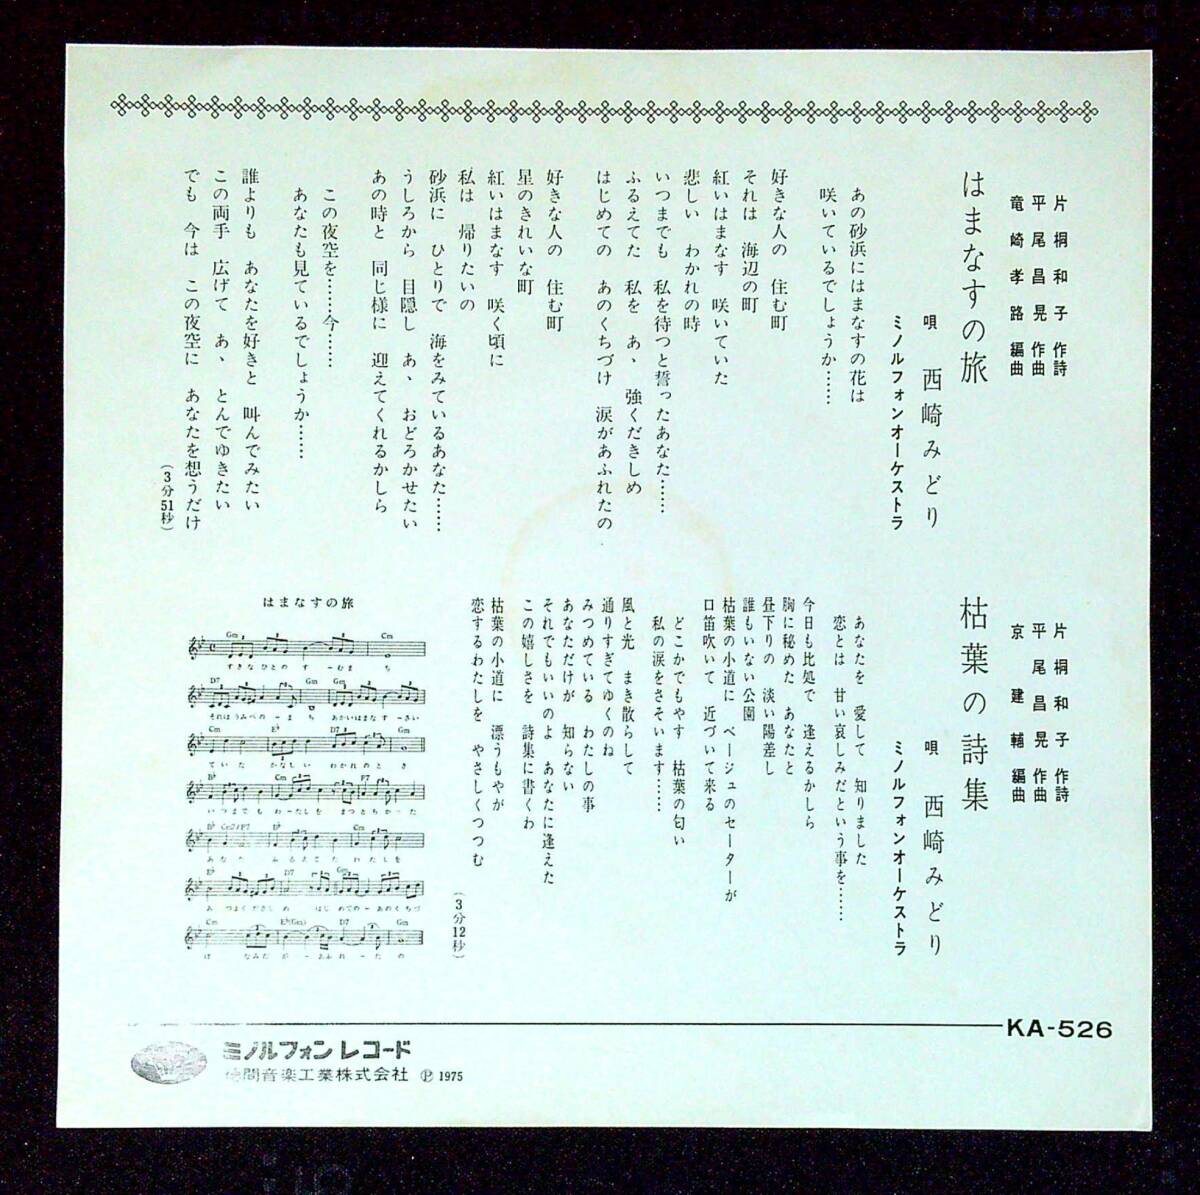 片桐和子 作詩
平尾昌晃 作曲
竜崎孝路 編曲
はまなすの旅
唄 西崎みどり
ミノルフォンオーケストラ
あの砂浜にはまなすの花は
咲いているでしょうか……
好きな人の 住む町
それは 海辺の町
紅いはまなす 咲いていた
悲しい わかれの時
いつまでも 私を待つと誓ったあなた……
ふるえてた 私を あゝ 強くだきしめ
はじめての あのくちづけ 涙があふれたの
好きな人の 住む町
星のきれいな町
紅いはまなす 咲く頃に
私は 帰りたいの
砂浜に ひとりで 海をみているあなた……
うしろから 目隠し あゝ おどろかせたい
あの時と 同じ様に 迎えてくれるかしら
この夜空を……今……
あなたも見ているでしょうか……
誰よりも あなたを好きと 叫んでみたい
この両手 広げて あゝ とんでゆきたい
でも 今は この夜空に あなたを想うだけ
(3分51秒)
片桐和子 作詩
平尾昌晃 作曲
京建輔 編曲
枯葉の詩集
唄 西崎みどり
ミノルフォンオーケストラ
あなたを 愛して 知りました
恋とは 甘い哀しみだという事を……
今日も此処で 逢えるかしら
胸に秘めた あなたと
昼下りの 淡い陽差し
誰もいない公園
枯葉の小道に ベージュのセーターが
口笛吹いて 近づいて来る
どこかでもやす 枯葉の匂い
私の涙をさそいます……
風と光 まき散らして
通りすぎてゆくのね
みつめている わたしの事
あなただけが 知らない
それでもいいのよ あなたに逢えた
この嬉しさを 詩集に書くわ
枯葉の小道に 漂うもやが
恋するわたしを やさしくつつむ
(3分12秒)
はまなすの旅
Gm Cm
すきなひとの すーむまち
D7 Gm Gm
それはうみべの ー まち あかいはまなす ーさい
Cm B♭ D7 Gm
ていた かなしい わかれのとき
B♭ Cm F7
いつまでも わーたしを まつとちかーった
B♭ Cm7 F7 B♭ Cm
あなた ふるえてた わたしを
E♭ D7 Gm
あ つよくだきしめ はじめてのーあのくちづ
Cm E♭(Gm) D7 Gm
け なみだがーあふれーたの
KA-526
ミノルフォンレコード
徳間音楽工業株式会社 Ⓟ 1975